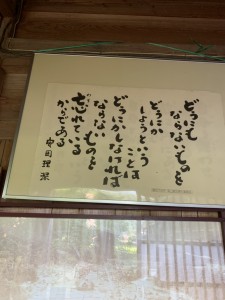 どうにも
ならないものを
どうにか
しようという
ことは
どうにかしなければ
ならない ものを
忘れている
からである
安田理深